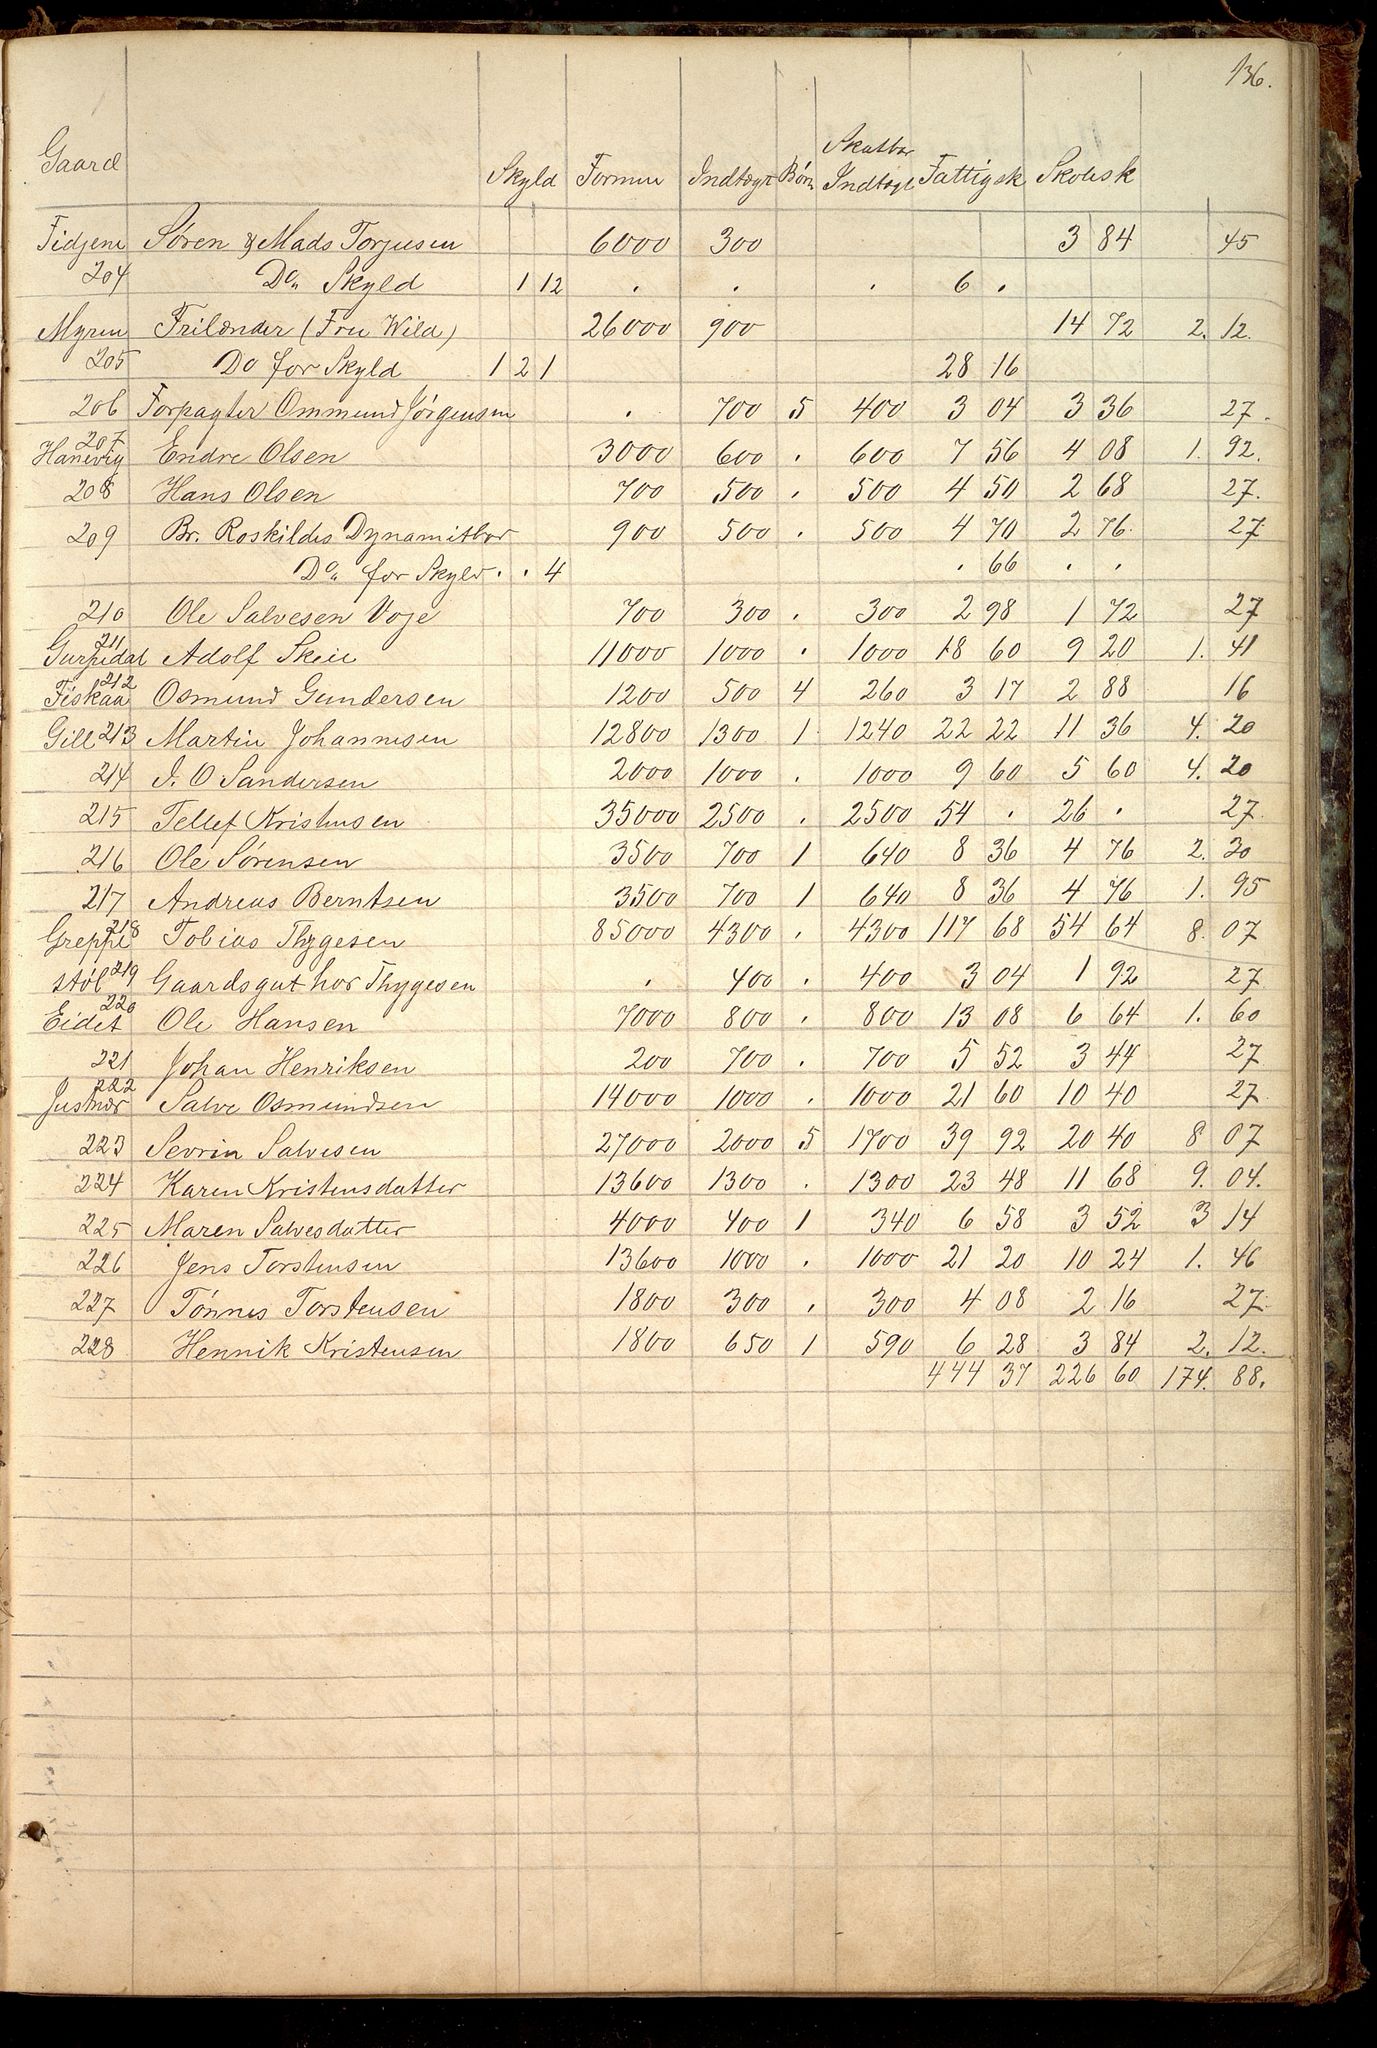 136.
Gaard Skyld Formue Indtægt Børn Skatbar Indtægt Fattigsk Skolesk
Fidjene Søren & Mads Torjusen 6000 300 3 84 45
204 Do„ Skyld 1 12 . . . 6 .
Myren Frilænder (Fru Wild) 26000 900 14 72 2. 12.
205 Do for Skyld 1 2 1 28 16
206 Forpagter Ommund Jörgensen . 700 5 400 3 04 3 36 27.
207 Hanevig Endre Olsen 3000 600 . 600 7 56 4 08 1. 92.
208 Hans Olsen 700 500 . 500 4 50 2 68 27.
209 Br. Roskildes Dynamitbor 900 500 . 500 4 70 2 76. 27
Do„ for Skyld . . 4 . 66 . .
210 Ole Salvesen Voje 700 300 . 300 2 98 1 72 27
211 Adolf Skeie 11000 1000 . 1000 18 60 9 20 1. 41
212 Fiskaa Osmund Gundersen 1200 500 4 260 3 17 2 88 16
Gill 213 Martin Johannesen 12800 1300 1 1240 22 22 11 36 4. 20
214 J. O Sandersen 2000 1000 . 1000 9 60 5 60 4. 20
215 Tellef Kristensen 35000 2500 . 2500 54 . 26 . 27.
216 Ole Sörensen 3500 700 1 640 8 36 4 76 2. 30
217 Andreas Berntsen 3500 700 1 640 8 36 4 76 1. 95
218 Greppe Tobias Thygesen 85000 4300 . 4300 117 68 54 64 8. 07
støl 219 Gaardsgut hos Thygesen . 400 . 400 3 04 1 92 27
220 Eidet Ole Hansen 7000 800 . 800 13 08 6 64 1. 60
221 Johan Henriksen 200 700 . 700 5 52 3 44 27
222 Justnær Salve Osmundsen 14000 1000 . 1000 21 60 10 40 27.
223 Sevrin Salvesen 27000 2000 5 1700 39 92 20 40 8 07
224 Karen Kristensdatter 13600 1300 . 1300 23 48 11 68 9. 04.
225 Maren Salvesdatter 4000 400 1 340 6 58 3 52 3 14
226 Jens Torstensen 13600 1000 . 1000 21 20 10 24 1. 46
227 Tönnes Torstensen 1800 300 . 300 4 08 2 16 27.
228 Henrik Kristensen 1800 650 1 590 6 28 3 84 2. 12.
444 37 226 60 174. 88.